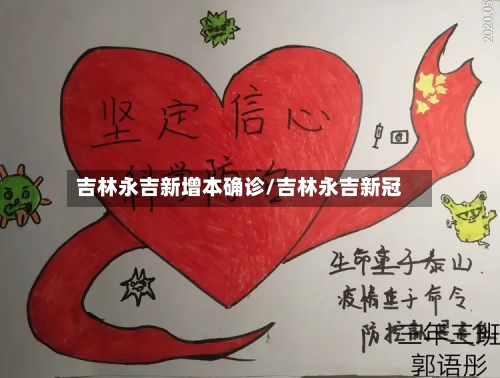 2020.05
坚定信心
科学防治
吉林永吉新增本确诊/吉林永吉新冠
生命重于泰山
疫情重于命令
防控就是责任
三年二班
郭语彤